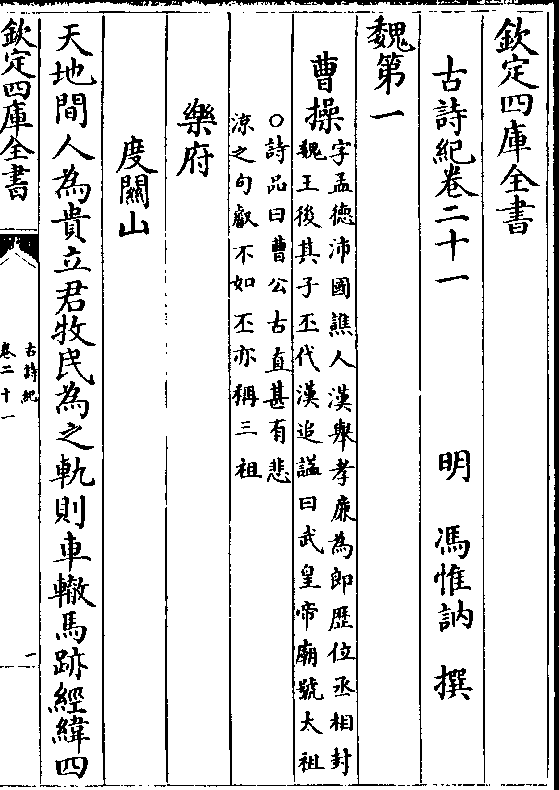 欽定四庫全書
古詩紀卷二十一
明 馮惟訥 撰
魏第一
曹操
字孟德沛國譙人漢舉孝廉為郎歴位丞相封
魏王後其子丕代漢追謚曰武皇帝廟號太祖
○詩品曰曹公古直甚有悲
涼之句叡不如丕亦稱三祖
樂府
度關山
天地間人為貴立君牧民為之軌則車轍馬跡經緯四
欽定四庫全書
古詩紀
卷二十一
一